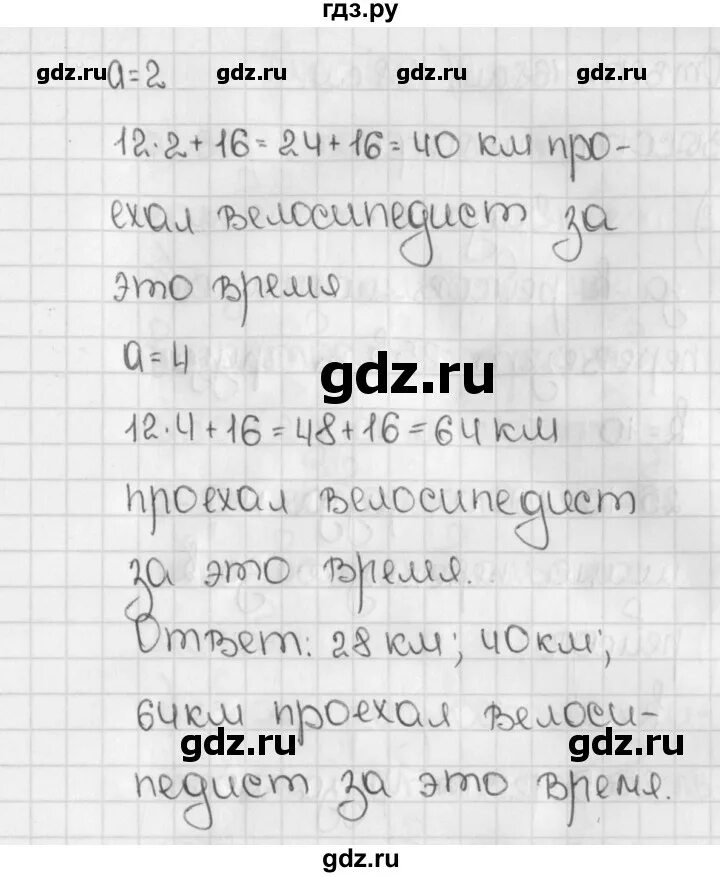 гдз.ру
gdz.ru gdz.ru gdz.ru gdz.ru
a=2
12·2+16=24+16=40 км про-
ехал велосипедист за
это время
a=4
gdz.ru
12·4+16=48+16=64 км
проехал велосипедист
за это время.
Ответ: 28 км; 40 км;
64 км проехал велоси-
gdz.ru gdz.ru
педист за это время.
gdz.ru